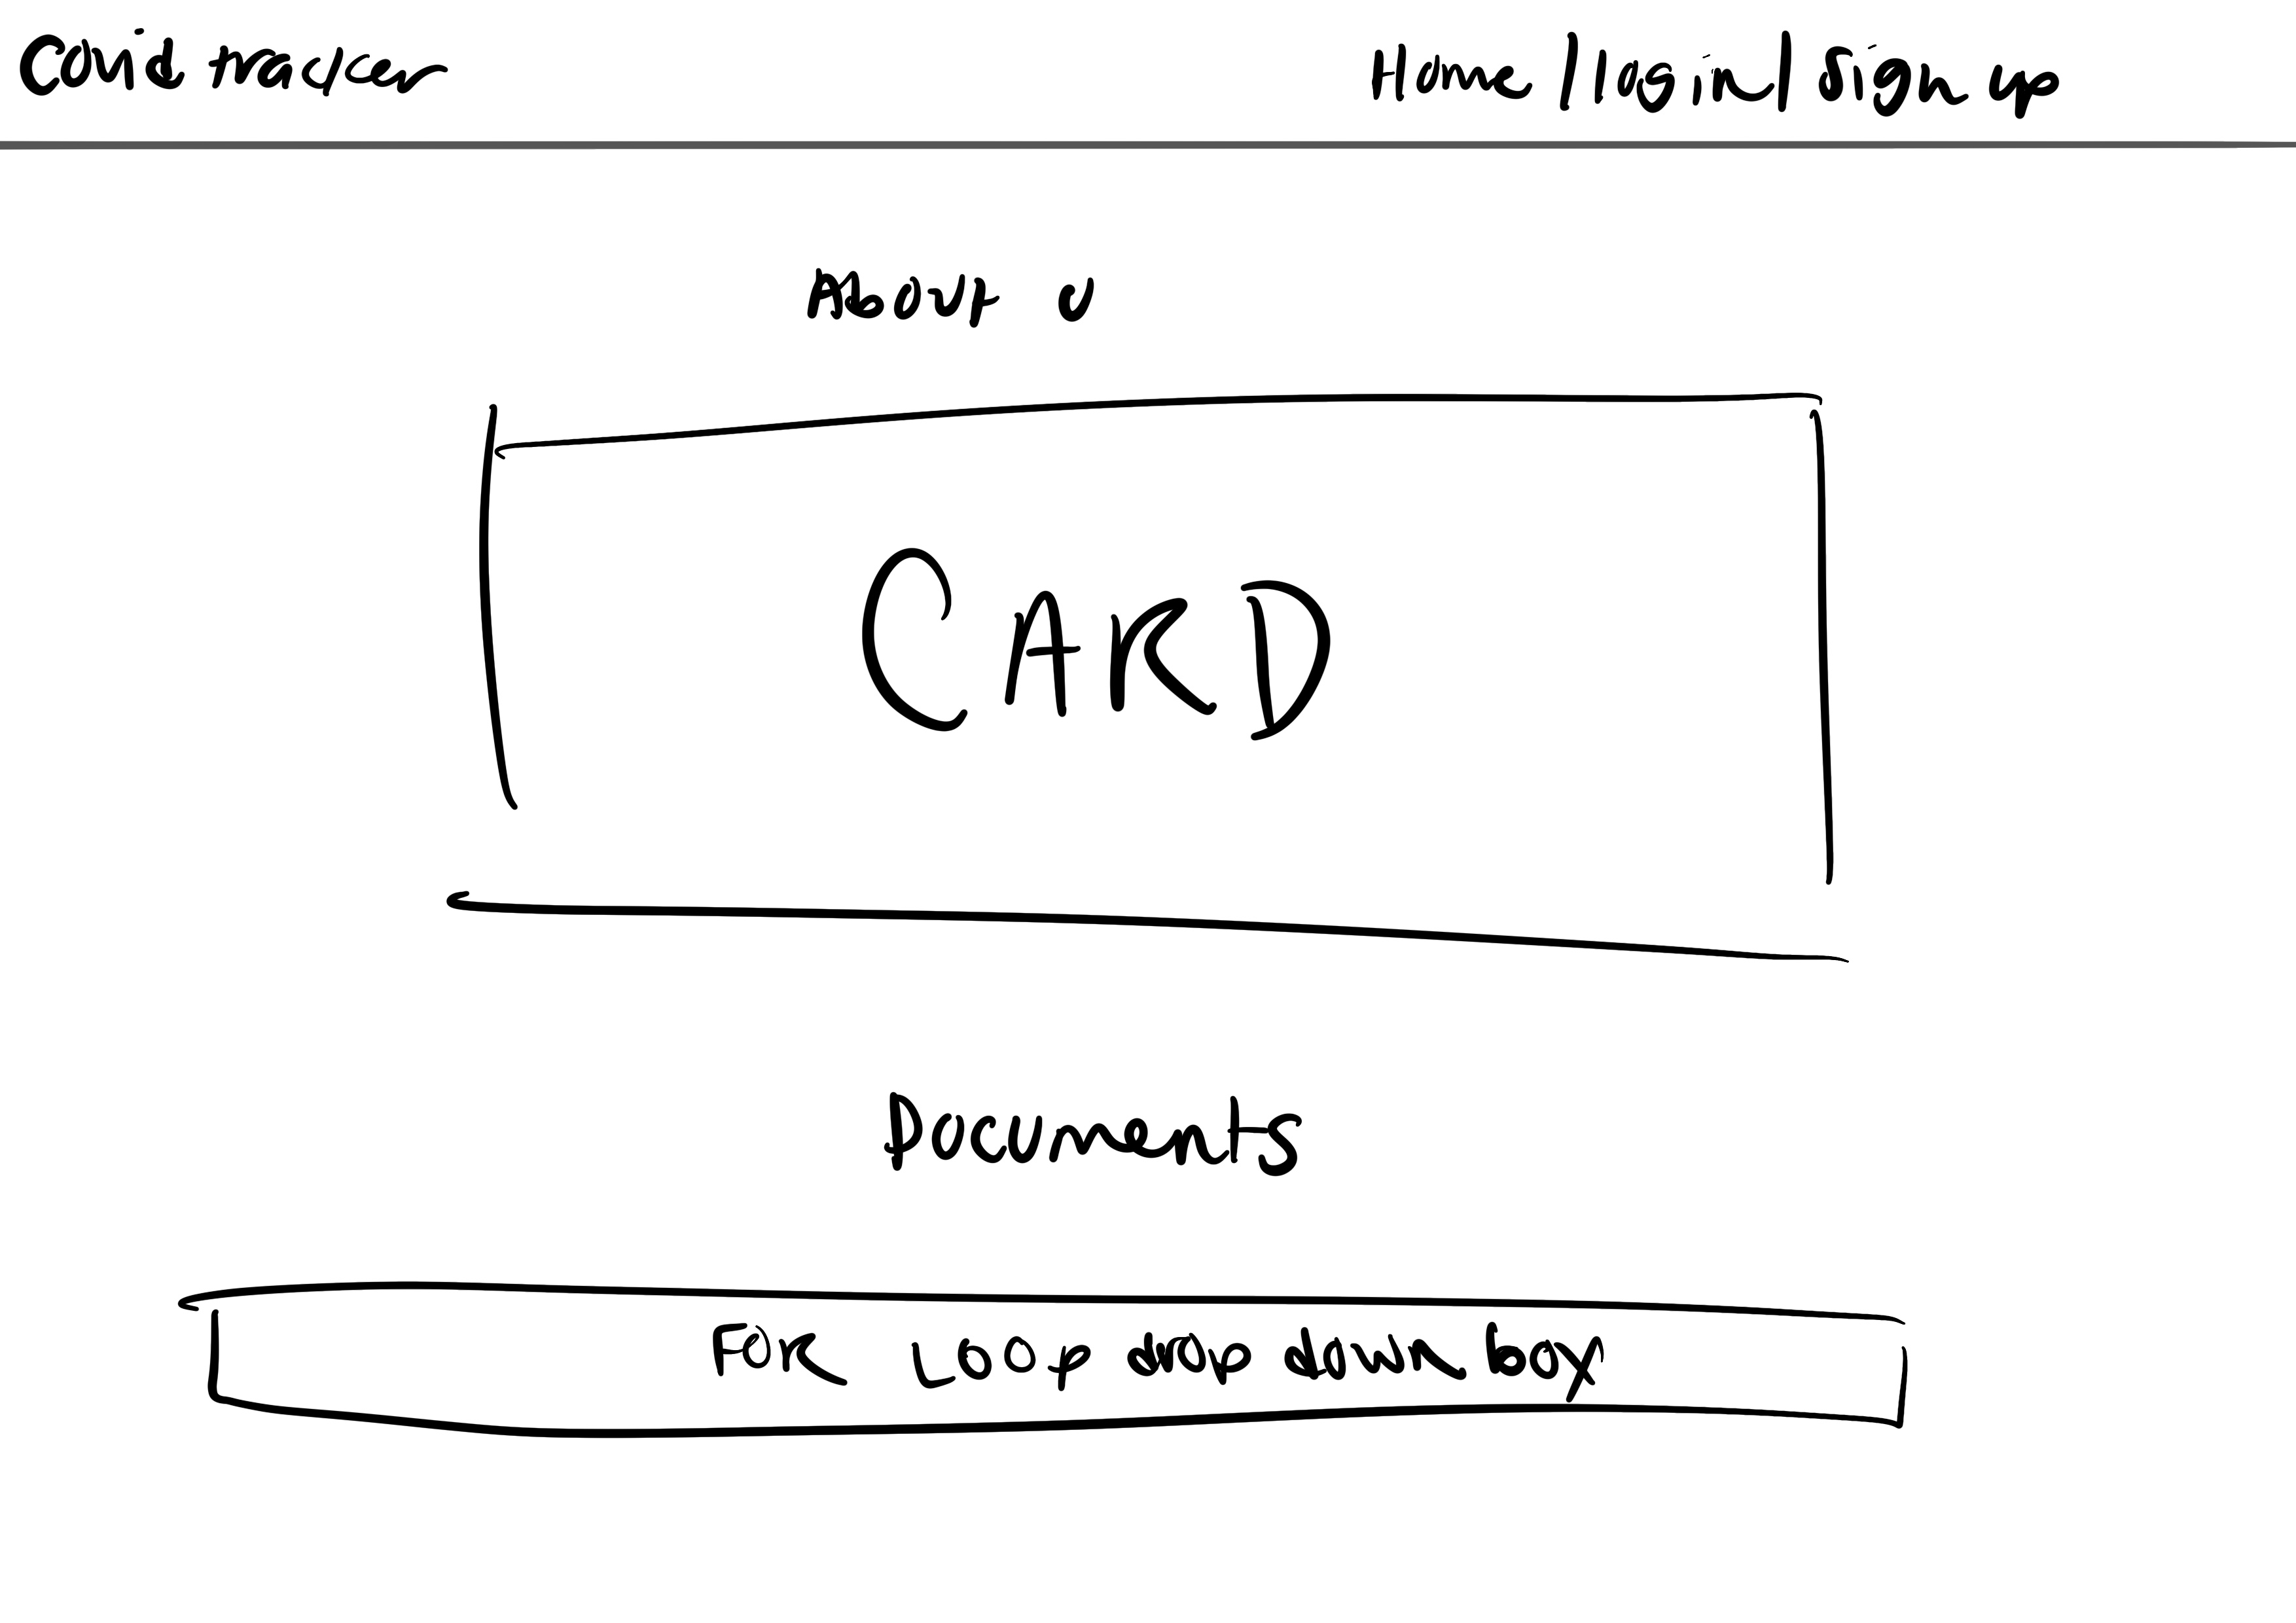 Covid tracker
Home / log in / Sign up
About u
CARD
Documents
FOR Loop drop down box